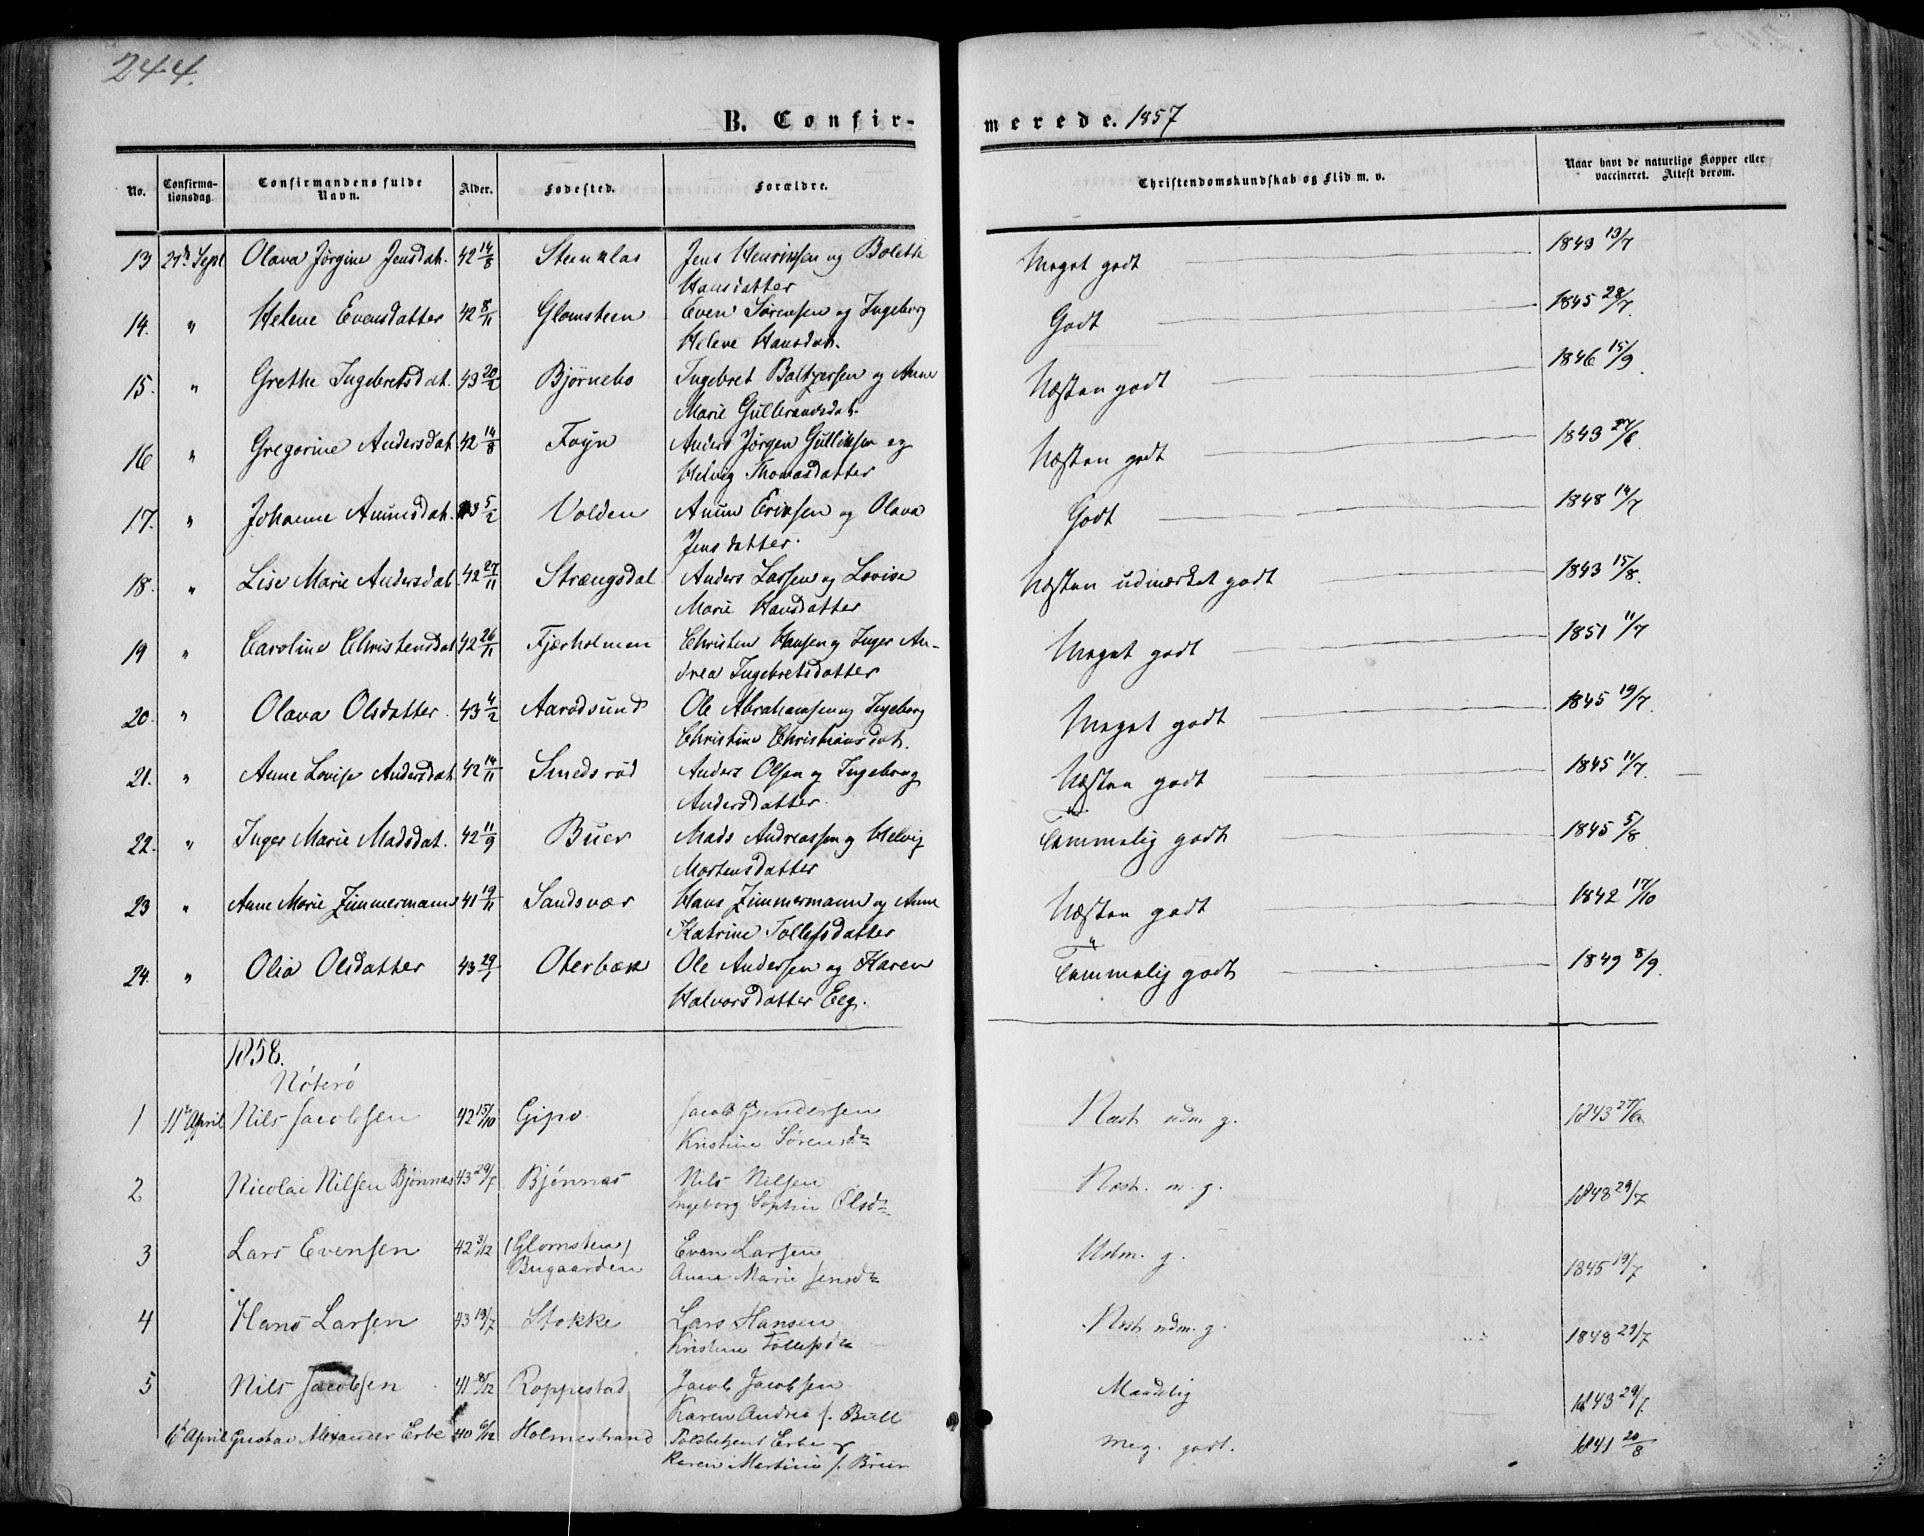 244.
B. Confir- merede. 1857
No. Confirma-tionsdag. Confirmandens fulde Navn. Alder. Fødested. Forældre. Christendomskundskab og Flid m. v. Naar havt de naturlige Kopper eller vaccineret. Attest derom.
13 27de Sept Olava Jørgine Jensdat. 42 14/8 Steenklas Jens Henriksen og Bolette Meget godt 1843 13/7
Hansdatter
14. " Helene Evensdatter 42 8/11 Glomsteen Even Sørensen og Ingeborg Godt 1845 28/7.
Helene Hansdat.
15. " Grethe Ingebretsdat. 43 20/2 Bjørnebo Ingebret Baltzersen og Anne Næsten godt 1846 15/9.
Marie Gulbrandsdat.
16 " Gregorine Andersdat 42 14/8 Foyn Anders Jørgen Gulliksen og Næsten godt 1843 27/6.
Helvig Thomasdatter
17. " Johanne Anunsdat. 43 5/2 Volden Anun Eriksen og Olava Godt 1848 14/7.
Jensdatter.
18. " Lise Marie Andersdat. 42 27/11 Strængsdal Anders Larsen og Lovise Næsten udmærket godt 1843 15/8.
Marie Hansdatter
19 " Caroline Christensdat 42 26/11 Fjærholmen Christen Hansen og Inger An- Meget godt 1851 11/7
drea Ingebretsdatter
20. " Olava Olsdatter 43 4/2 Aarødsund Ole Abrahamsen og Ingeborg Meget godt 1845 19/7.
Christine Christiansdat.
21. " Anne Lovise Andersdat. 42 14/11 Smedsrød Anders Olsen og Ingeborg Næsten godt 1845 11/7.
Andersdatter.
22. " Inger Marie Madsdat. 42 11/9 Buer Mads Andreassen og Helvig Temmelig godt 1845 5/8.
Mortensdatter
23 " Anne Marie Zimmermann 41 19/11 Sandsvær Hans Zimmermann og Anne Næsten godt 1842 17/10
Katrine Tollefsdatter
24. " Olia Olsdatter 43 29/7 Oterbæk Ole Andersen og Karen Temmelig godt 1849 8/9.
Halvorsdatter Eeg.
1858.
Nøterø
1 11te April Nils Jacobsen 42 15/10 Gipø Jacob Gundersen Næst. udm. g. 1843 27/6
Kristine Sørensdr
2 Nicolai Nilsen Bjønnæs 43 29/7 Bjønnæs Nils Nilsen Næst. m. g. 1848 29/7
Ingeborg Sophie Olsdr
3 Lars Evensen 42 3/12 (Glomsten) Even Larsen Udm. g. 1845 19/7
Bugaarden Anne Marie Jensdr
4 Hans Larsen 43 19/7 Stokke Lars Hansen Næst. udm. g. 1848 29/7
Kristine Tollefsdr
5 Nils Jacobsen 41 8/12 Roppestad Jacob Jacobsen Maadelig 1843 29/7.
Karen Andrea f. Bull
6te April Gustav Alexander Erbe 40 6/12 Holmestrand Toldbetjent Erbe og Meg. godt. 1841 20/8
Karen Martinie f. Bruer